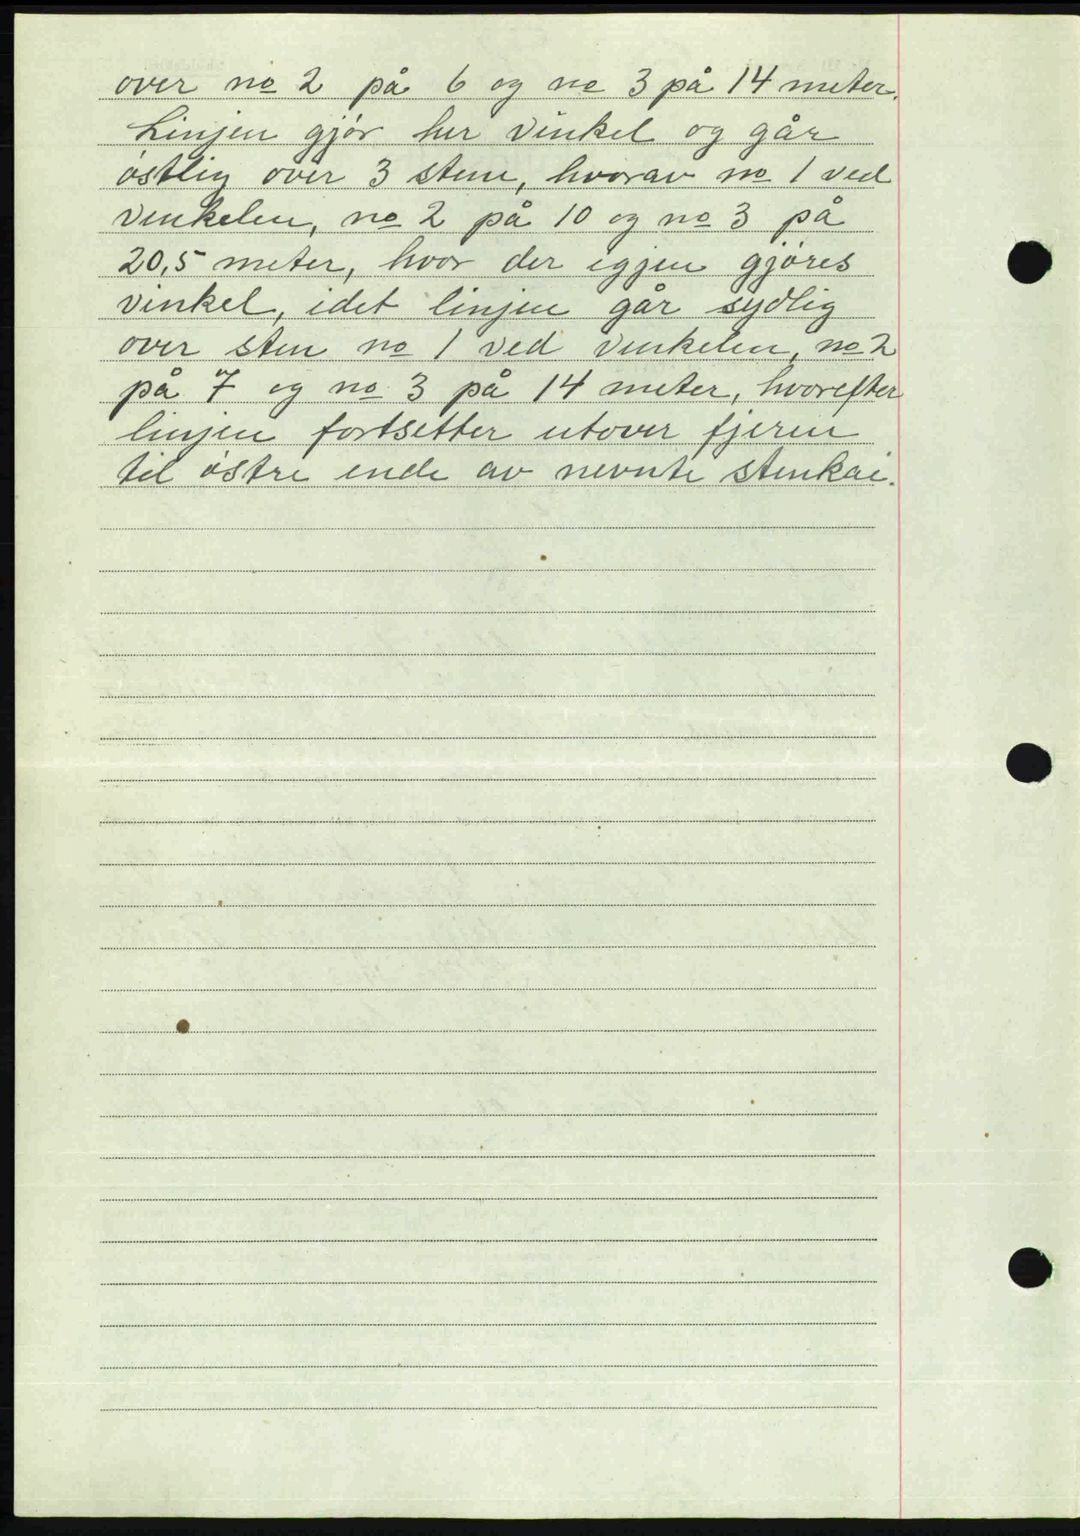 over no 2 på 6 og no 3 på 14 meter.
Linjen gjør her vinkel og går
østlig over 3 stene, hvorav no 1 ved
vinkelen, no 2 på 10 og no 3 på
20,5 meter, hvor der igjen gjøres
vinkel, idet linjen går sydlig
over sten no 1 ved vinkelen, no 2
på 7 og no 3 på 14 meter, hvorefter
linjen fortsetter utover fjeren
til østre ende av nevnte stenkai.